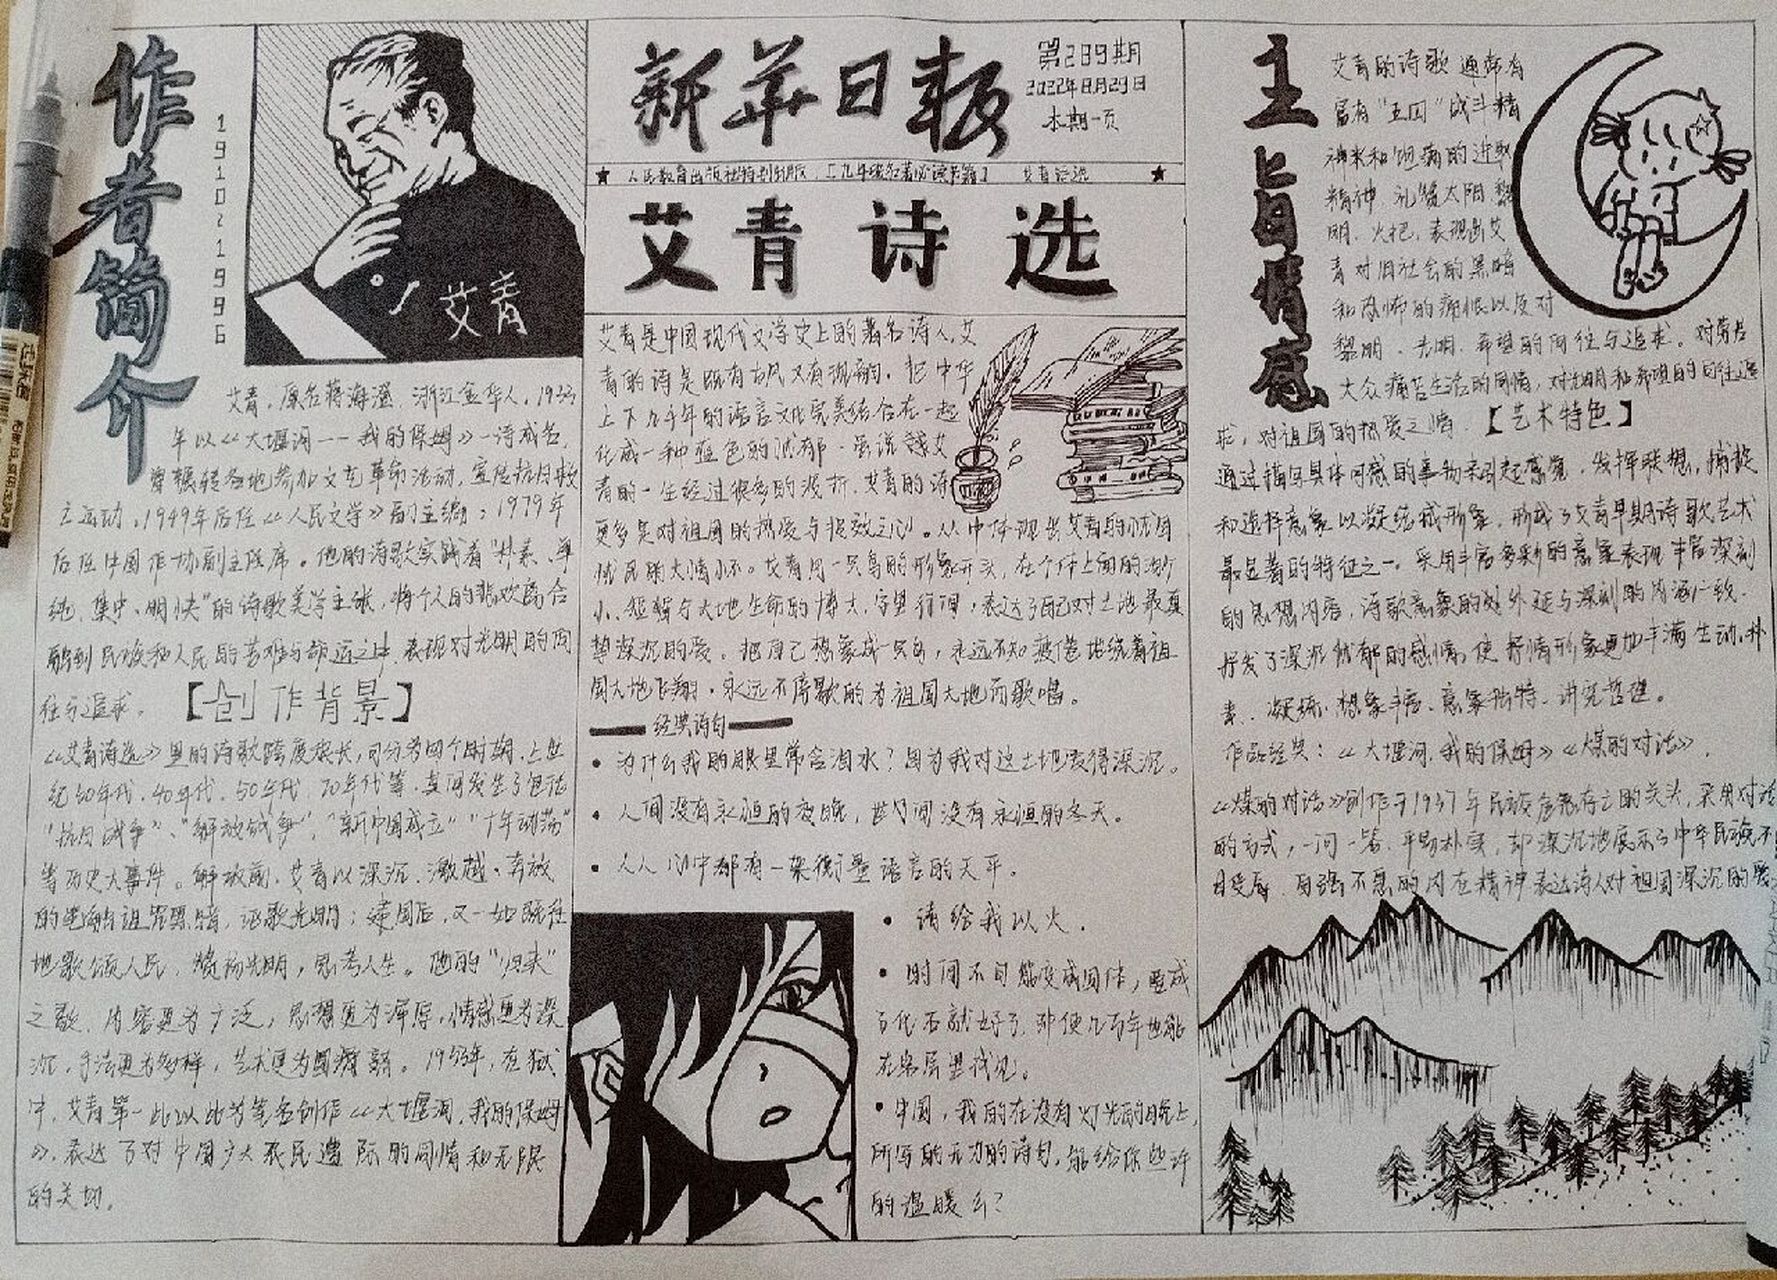 作者简介
1910-1996
艾青
艾青，原名蒋海澄，浙江金华人，1933
年以《大堰河——我的保姆》一诗成名，
曾辗转各地参加文艺革命活动，宣传抗日救
亡运动，1949年后任《人民文学》副主编，1979年
后任中国作协副主席。他的诗歌实践着“朴素、单
纯、集中、明快”的诗歌美学主张，将个人的悲欢离合
融到民族和人民的苦难与命运之中，表现对光明的向
往与追求。
【创作背景】
《艾青诗选》里的诗歌跨度挨长，可分为四个时期，上世
纪30年代、40年代、50年代、70年代等，其间发生了包括
“抗日战争”、“解放战争”、“新中国成立”“十年动荡”
等历史大事件。解放前，艾青以深沉、激越、奔放
的笔触诅咒黑暗，讴歌光明；建国后，又一如既往
地歌颂人民，赞扬光明，思考人生。他的“归来”
之歌，内容更为广泛，思想更为浑厚，情感更为深
沉，手法更为多样，艺术更为圆满。1933年，在狱
中，艾青第一次以此为笔名创作《大堰河，我的保姆
》，表达了对中国广大农民遭际的同情和无限
的关切。
新华日报
第289期
2022年8月29日
本期一页
人民教育出版社特别出版，【九年级名著必读书籍】 艾青诗选
艾青诗选
艾青是中国现代文学史上的著名诗人，艾
青的诗是既有古风又有现韵，把中华
上下几千年的语言文化完美结合在一起
化成一种蓝色的忧郁，虽说越艾
青的一生经过很多的波折，艾青的诗
更多是对祖国的热爱与报效之心。从中体现出艾青的忧国
忧民的大情小怀。艾青用一只鸟的形象开头，在个体上的渺
小、短暂与大地生命的博大，字里行间，表达了自己对土地最真
挚深沉的爱。把自己想象成一只鸟，永远不知疲倦地绕着祖
国大地飞翔，永远不停歇的为祖国大地而歌唱。
经典诗句
• 为什么我的眼里常含泪水？因为我对这土地爱得深沉。
• 人间没有永恒的夜晚，世间没有永恒的冬天。
• 人人心中都有一架衡量语言的天平。
• 请给我以火，
• 时间不可能变成固体，要成
了化石就好了，即使几百年也能
在岩层里找见。
• 中国，我的在没有灯光的晚上，
所写的无力的诗句，能给你些许
的温暖么？
主旨情感
艾青的诗歌通常有
富有“五四”战斗精
神来和饱满的进取
精神，礼赞太阳、黎
明、火把，表现出艾
青对旧社会的黑暗
和恐怖的痛恨以及对
黎明、光明、希望的向往与追求。对劳苦
大众痛苦生活的同情，对光明和希望的向往追
求，对祖国的热爱之情。
【艺术特色】
通过描写具体可感的事物来引起感觉，发挥联想，捕捉
和选择意象以凝结成形象，形成了艾青早期诗歌艺术
最显著的特征之一。采用丰富多彩的意象表现丰富深刻
的思想内容，诗歌意象的外延与深刻的内涵一致，
抒发了深沉忧郁的感情，使抒情形象更加丰满生动，朴
素、凝练、想象丰富、意象独特、讲究哲理。
作品经典：《大堰河，我的保姆》《煤的对话》，
《煤的对话》创作于1937年民族危急存亡的关头，采用对话
的方式，一问一答，平易朴实，却深沉地展示了中华民族不
甘受辱，自强不息的内在精神表达诗人对祖国深沉的爱